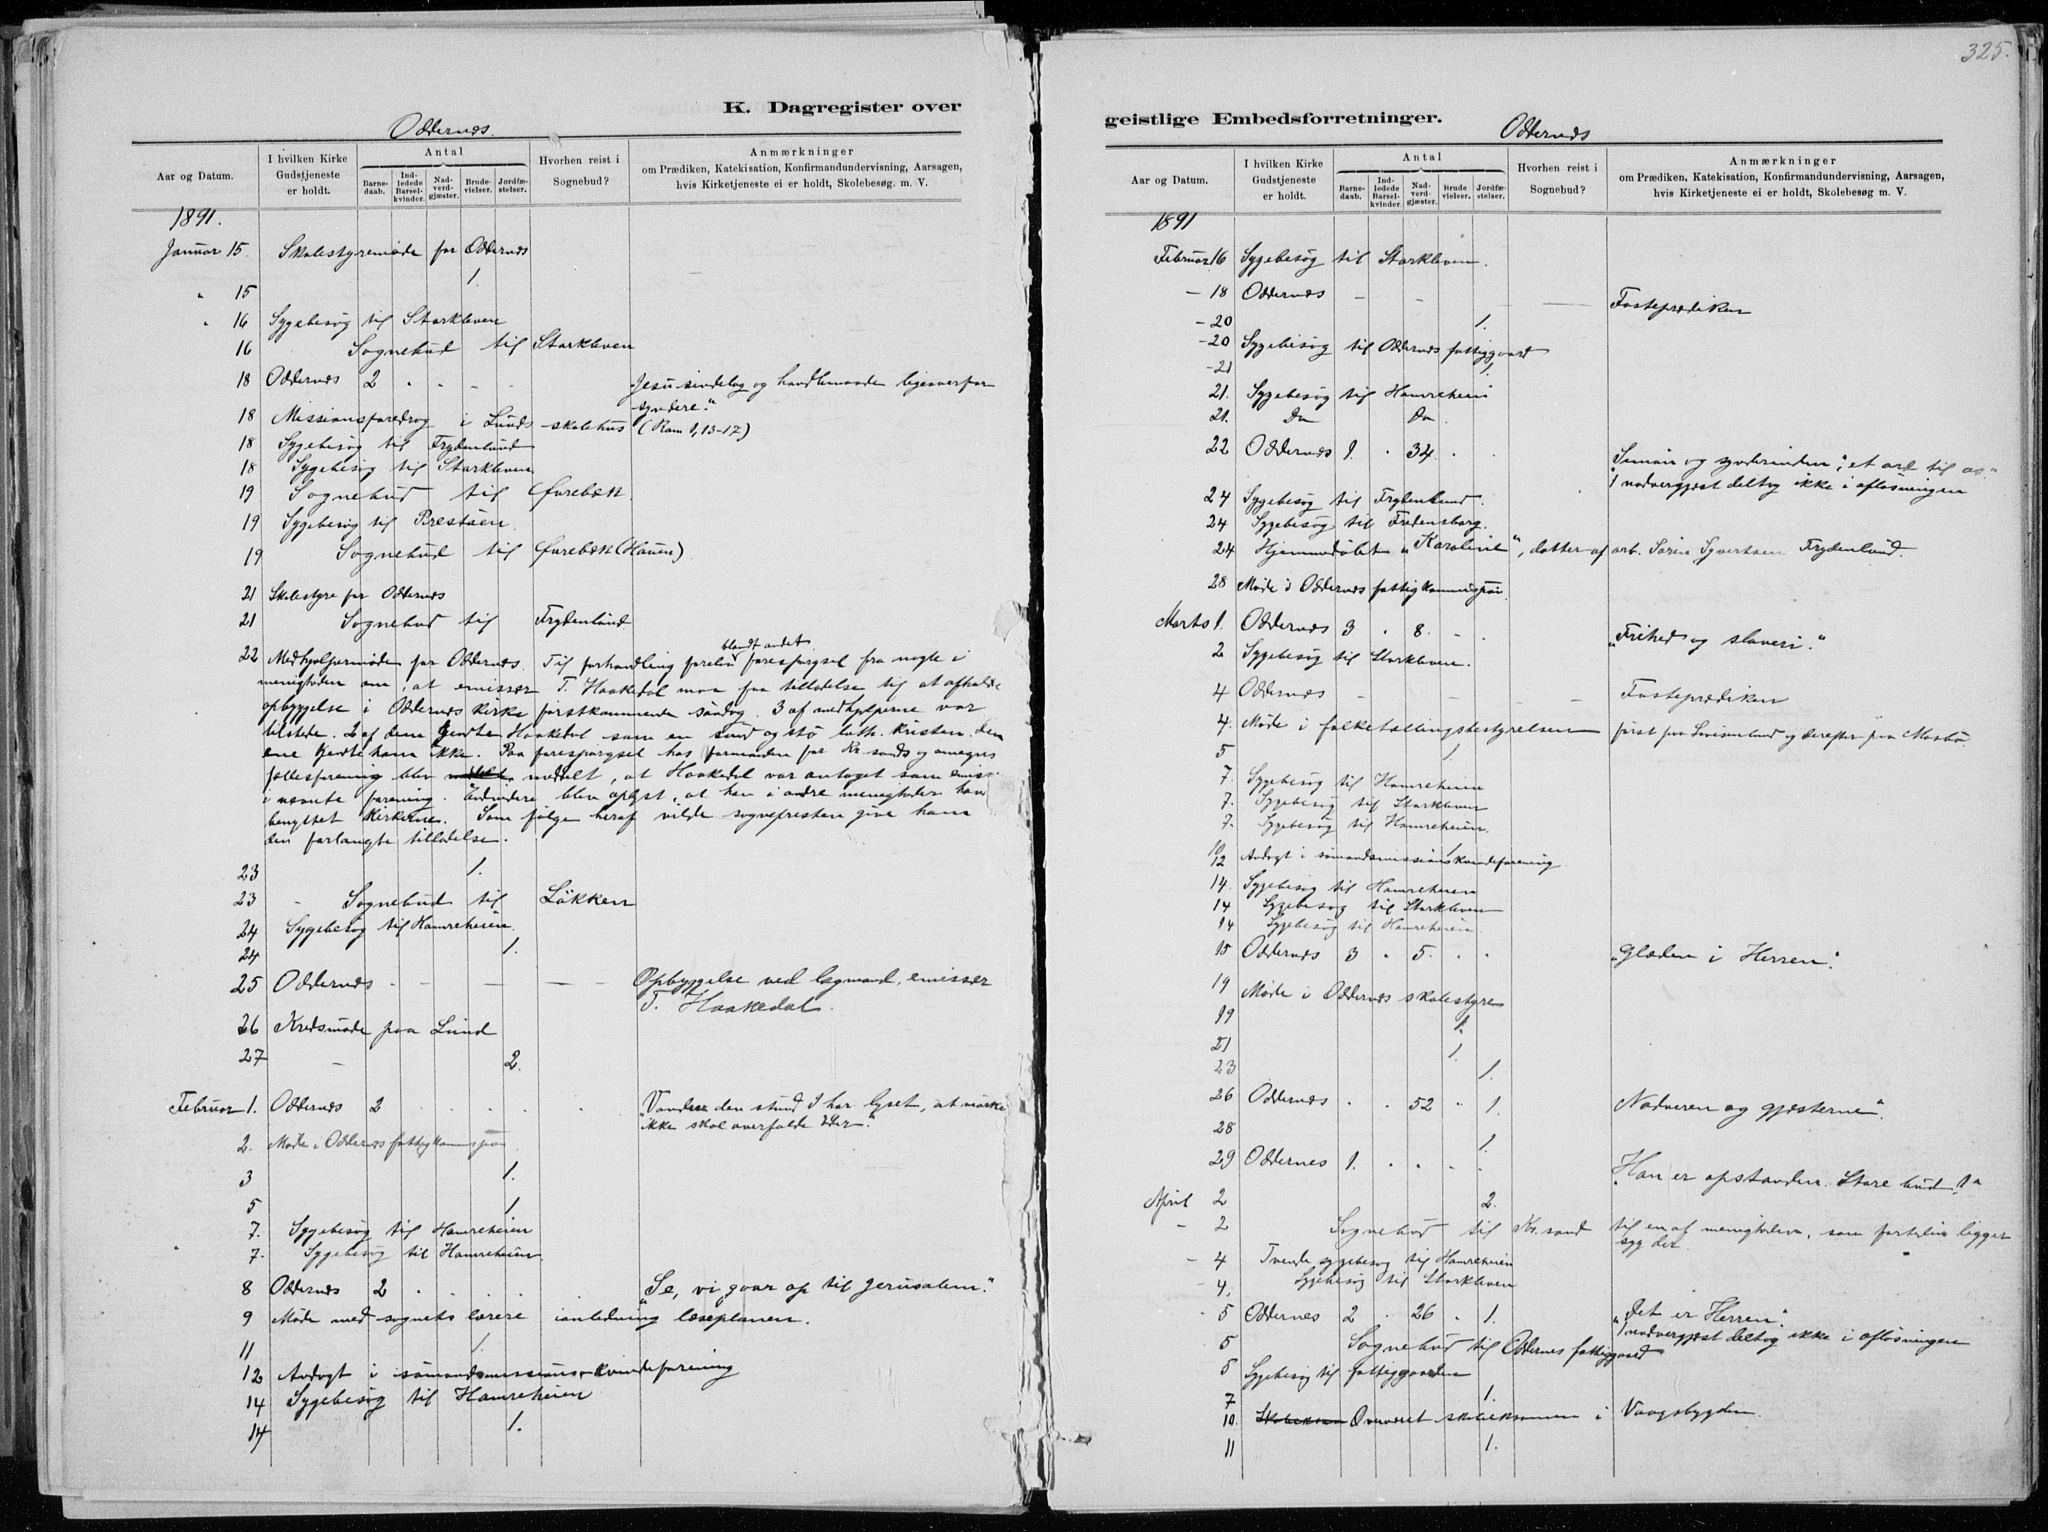 K. Dagregister over
Oddernes.
Aar og Datum.
I hvilken Kirke Gudstjeneste er holdt.
Antal
Barnedaab.
Indledede Barselkvinder.
Nadverdgjæster.
Brudevielser.
Jordfæstelser.
Hvorhen reist i Sognebud?
Anmærkninger
om Prædiken, Katekisation, Konfirmandundervisning, Aarsagen,
hvis Kirketjeneste ei er holdt, Skolebesøg. m. V.
1891.
Januar 15 Skolestyremøde for Oddernes
" 15 1.
" 16 Sygebesøg til Starkleven
16 Sognebud til Starkleven
18 Oddernes 2 " - - Jesu sindelag og handlemaade ligeoverfor
syndere."
18 Missionsforedrag i Lunds skolehus (Rom 1, 13-17)
18 Sygebesøg til Frydenlund
18 Sygebesøg til Starkleven
19 Sognebud til Ørebæk
19 Sygebesøg til Prestøen.
19 Sognebud til Ørebæk (Hauen)
21 Skolestyre for Oddernes
21 Sognebud til Frydenlund
blandt andet
22 Medhjælpermøde for Oddernes. Til forhandling forelaa forespørgsel fra nogle i
menigheden om, at emissær T. Haakedal maa faa tilladelse til at afholde
opbyggelse i Oddernes kirke førstkommende søndag. 3 af medhjelperne var
tilstede. 2 af dem kjendte Haakedal som en sund og stø luth. kristen, den
ene kjendte ham ikke. Paa forespørgsel hos formanden for Kr.sands og omegns
fællesforening blev meddelt, at Haakedal var antaget som emiss.
i nævnte forening. Endvidere blev oplyst, at han i andre menigheder havde
benyttet kirkerne. Som følge heraf vilde sognepresten give ham
den forlangte tilladelse.
23 1.
23 - Sognebud til Løkken
24 Sygebesøg til Hamreheien.
24 1.
25 Oddernes - - - - - Opbyggelse ved lægmand, emissær
T. Haakedal.
26 Kredsmøde paa Lund
27 - 2.
Februar 1. Oddernes 2 . . . . . "Vandrer den stund I har lyset, at mørke
ikke skal overfalde Eder."
2. Møde i Oddernes fattigkommission
3 1.
5 1
7. Sygebesøg til Hamreheien
7. Sygebesøg til Hamreheien.
8 Oddernes 2 . . . . "Se, vi gaar op til Jerusalem."
9 Møde med sognets lærere i anledning læseplanen.
11 1
12 Andagt i sømandsmissions-kvindeforening
14 Sygebesøg til Hamreheien
14 1.
325.
geistlige Embedsforretninger.
Oddernes
Aar og Datum.
I hvilken Kirke Gudstjeneste er holdt.
Antal
Barnedaab.
Indledede Barselkvinder.
Nadverdgjæster.
Brudevielser.
Jordfæstelser.
Hvorhen reist i Sognebud?
Anmærkninger
om Prædiken, Katekisation, Konfirmandundervisning, Aarsagen,
hvis Kirketjeneste ei er holdt, Skolebesøg m. V.
1891
Februar 16 Sygebesøg til Starkleven.
- 18 Oddernes - - - Fasteprædiken
- 20 1.
- 20 Sygebesøg til Oddernes fattiggaard
- 21 1.
21. Sygebesøg til Hamreheien
21. Do Do.
22 Oddernes 1. " 34 . . "Simon og synderinden"; et ord til os."
1 nadvergjæst deltog ikke i afløsningen
24 Sygebesøg til Frydenlund.
24 Sygebesøg til Fredensborg.
24 Hjemmedøbt "Karoline", datter af arb. Søren Syvertsen Frydenlund.
28 Møde i Oddernes fattigkommission.
Marts 1. Oddernes 3 " 8. - . "Frihed og slaveri."
2 Sygebesøg til Starkleven.
4 Oddernes - - - - - Fasteprædiken
4. Møde i folketællingsbestyrelsen først paa Lovisenlund og derefter paa Mosbø
5 1
7. Sygebesøg til Hamreheien
7. Sygebesøg til Starkleven
7. Sygebesøg til Hamreheien.
10 1
12 Andagt i sømandsmissionskvindeforening
14. Sygebesøg til Hamreheien
14 Sygebesøg til Starkleven
14 Sygebesøg til Hamreheien
15 Oddernes 3 " 5. " " "Glæden i Herren."
19 Møde i Oddernes skolestyre
19 1.
21 1.
23 1.
26 Oddernes " " 52 " 1. Nadveren og gjæsterne".
28 1.
29 Oddernes 1. " " " . "Han er opstanden. Store bud!"
April 2 2.
- 2 Sognebud til Kr.sand til en af menigheden, som fortiden ligger
syg der.
- 4 Tvende sygebesøg til Hamreheien
- 4. Sygebesøg til Starkleven
5 Oddernes 2 " 26 " 1. "Det er Herren."
1 nadvergjæst deltog ikke i afløsningen
5 Sognebud til Oddernes fattiggaard
5 Sygebesøg til fattiggaarden
7 1.
10. Overværet skoleeksamen i Vaagsbygden.
11 1.